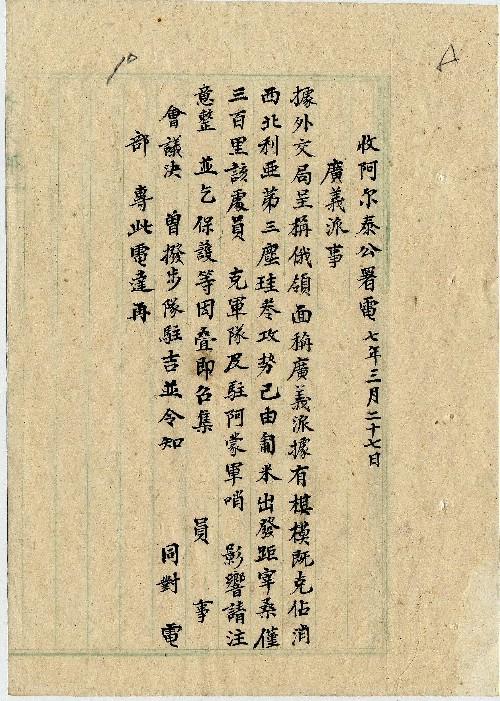 收阿尔泰公署電 七年三月二十七日
廣義派事
據外交局呈稱俄領面稱廣義派據有棋模既克佔消
西北利亜第三塵珪攻势已由米出發距宰桑僅
三百里該處員 克軍隊及駐阿蒙軍哨 影響請注
意整 並乞保護等因疊即召集 員 事
會議决 曽撥步隊駐吉並令知 同對 電
部 專此電達再